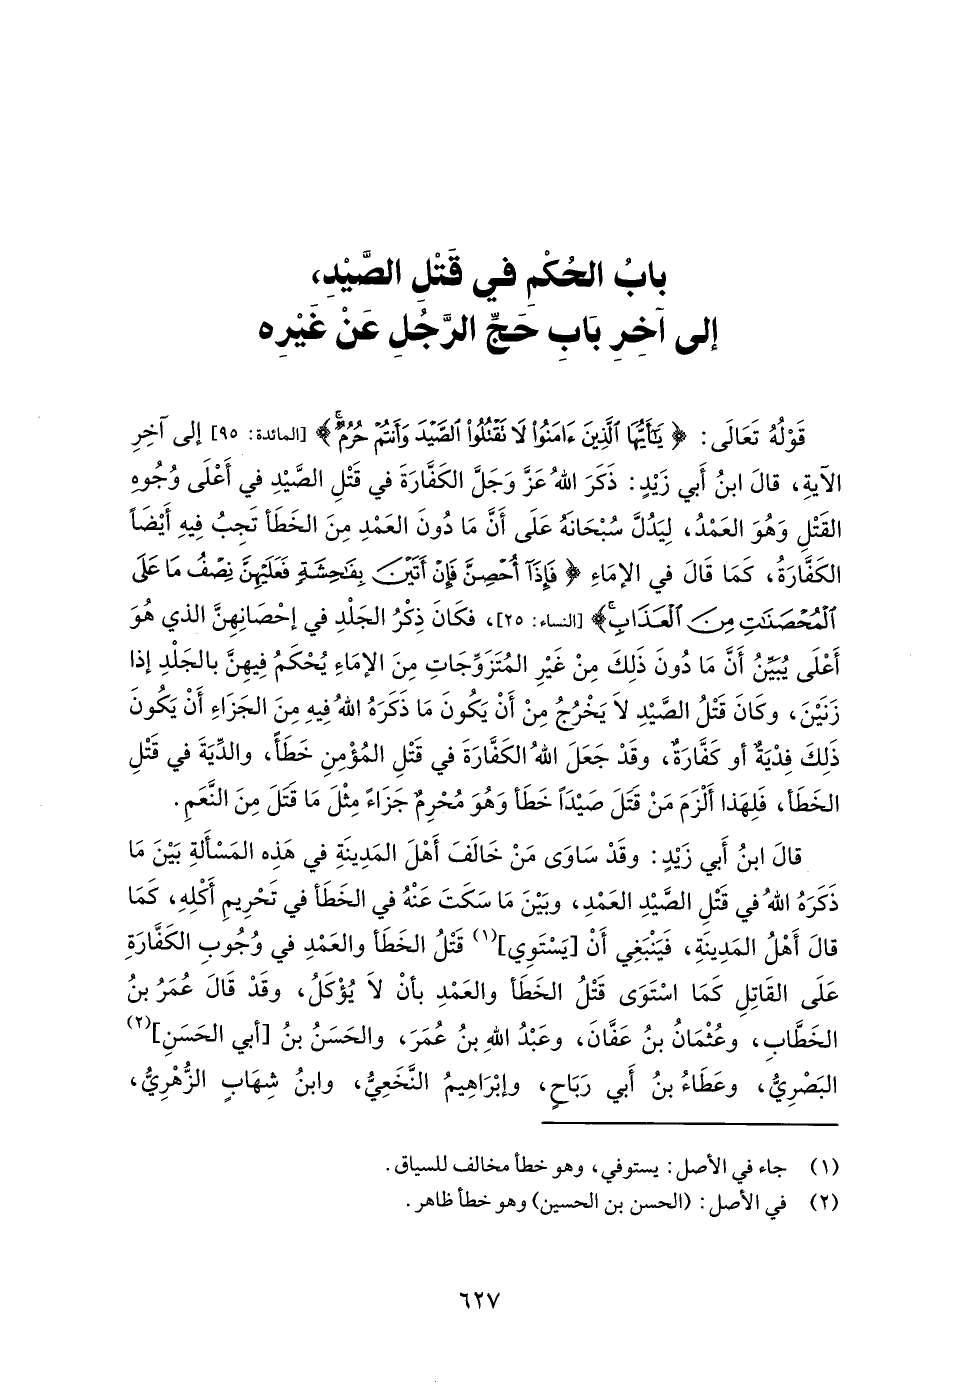 بابُ الحُكْمِ في قَتْلِ الصَّيْدِ،
إلى آخِرِ بَابِ حَجِّ الرَّجُلِ عَنْ غَيْرِه
قَوْلُهُ تَعَالَى: ﴿ يَٰٓأَيُّهَا ٱلَّذِينَ ءَامَنُوا۟ لَا تَقْتُلُوا۟ ٱلصَّيْدَ وَأَنتُمْ حُرُمٌ ۚ﴾ [المائدة: ٩٥] إلى آخِرِ
الآيةِ، قالَ ابنُ أبي زَيْدٍ: ذَكَرَ اللهُ عَزَّ وَجَلَّ الكَفَّارَةَ في قَتْلِ الصَّيْدِ في أَعْلَى وُجُوهِ
القَتْلِ وَهُوَ العَمْدُ، لِيَدُلَّ سُبْحَانَهُ عَلَى أَنَّ مَا دُونَ العَمْدِ مِنَ الخَطَأ تَجِبُ فِيهِ أَيْضَاً
الكَفَّارَةُ، كَمَا قَالَ في الإمَاءِ ﴿ فَإِذَآ أُحْصِنَّ فَإِنْ أَتَيْنَ بِفَٰحِشَةٍ فَعَلَيْهِنَّ نِصْفُ مَا عَلَى
ٱلْمُحْصَنَٰتِ مِنَ ٱلْعَذَابِ ۚ﴾ [النساء: ٢٥]، فكَانَ ذِكْرُ الجَلْدِ في إحْصَانِهِنَّ الذي هُوَ
أَعْلَى يُبَيِّنُ أَنَّ مَا دُونَ ذَلِكَ مِنْ غَيرِ المُتَزَوِّجَاتِ مِنَ الإمَاءِ يُحْكَمُ فِيهِنَّ بالجَلْدِ إذا
زَنَيْنَ، وكَانَ قَتْلُ الصَّيْدِ لا يَخْرُجُ مِنْ أَنْ يَكُونَ مَا ذَكَرَهُ اللهُ فِيهِ مِنَ الجَزَاءِ أَنْ يَكُونَ
ذَلِكَ فِدْيَةٌ أو كَفَّارَةٌ، وقَدْ جَعَلَ اللهُ الكَفَّارَةَ في قَتْلِ المُؤْمِنِ خَطَأً، والدِّيَةَ في قَتْلِ
الخَطَأ، فَلِهَذا أَلْزَمَ مَنْ قَتَلَ صَيْدَاً خَطَأ وَهُوَ مُحْرِمٌ جَزَاءً مِثْلَ مَا قَتَلَ مِنَ النَّعَمِ.
قالَ ابنُ أبي زَيْدٍ: وقَدْ سَاوَى مَنْ خَالَفَ أَهْلَ المَدِينَةِ في هَذِه المَسْأَلةِ بَيْنَ مَا
ذَكَرَهُ اللهُ في قَتْلِ الصَّيْدِ العَمْدِ، وبَيْنَ مَا سَكَتَ عَنْهُ في الخَطَأ في تَحْرِيمِ أَكْلِهِ، كَمَا
قالَ أَهْلُ المَدِينَةِ، فَيَنْبَغِي أَنْ [يَسْتَوِي](١) قَتْلُ الخَطَأ والعَمْدِ في وُجُوبِ الكَفَّارَةِ
عَلَى القَاتِلِ كَمَا اسْتَوَى قَتْلُ الخَطَأ والعَمْدِ بأنْ لا يُؤْكَلُ، وقَدْ قَالَ عُمَرُ بنُ
الخَطَّابِ، وعُثْمَانُ بنُ عَفَّانَ، وعَبْدُ اللهِ بنُ عُمَرَ، والحَسَنُ بنُ [أبي الحَسَنِ](٢)
البَصْرِيُّ، وعَطَاءُ بنُ أبي رَبَاحٍ، وإبْرَاهِيمُ النَّخَعِيُّ، وابنُ شِهَابٍ الزُّهْرِيُّ،
(١) جاء في الأصل: يستوفي، وهو خطأ مخالف للسياق.
(٢) في الأصل: (الحسن بن الحسين) وهو خطأ ظاهر.
٦٢٧